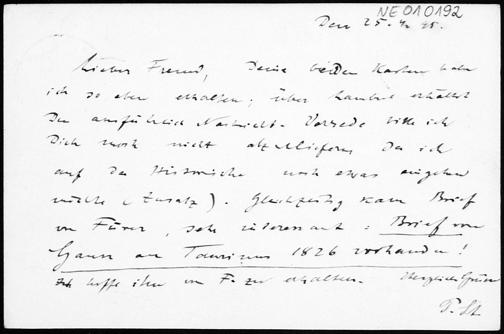 NE010192
Den 25. 4. 25.
Lieber Freund, Deine beiden Karten habe
ich so eben erhalten; über Lambert erhältst
Du ausführlich Nachricht. Vorrede bitte ich
Dich noch nicht abzuliefern, da ich
auf das Historische noch etwas eingehen
möchte (Zusatz). Gleichzeitig kam Brief
von Fürer, sehr interessant: Brief von
Gauss an Taurinus 1826 vorhanden!
Ich hoffe ihn von F. zu erhalten. Herzliche Grüsse
P. St